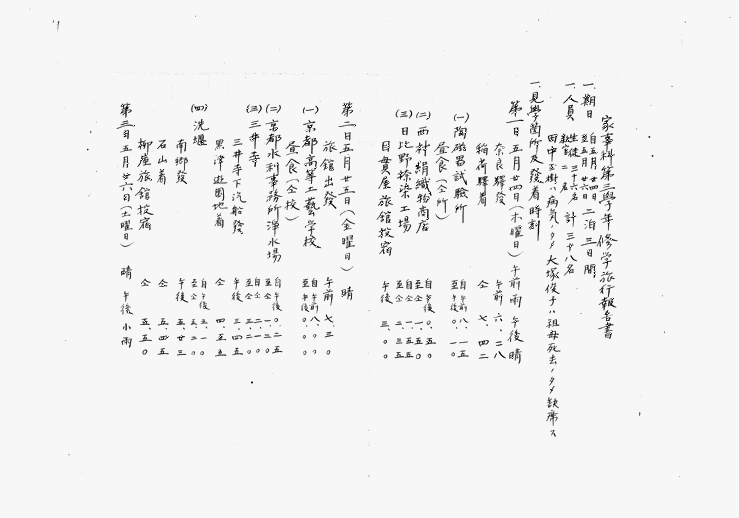 家事科第三學年修学旅行報告書
一、期日 自五月廿四日 至五月廿六日 二泊三日間
一、人員 生徒三十六名 教官二名 計三十八名
田中玉樹ハ病気ノタメ 大塚俊子ハ祖母死去ノタメ缺席ス
一、見學箇所及發着時刻
第一日五月廿四日(木曜日)午前雨 午後晴
奈良驛發 午前 六、二八
稲荷驛着 仝 七、四二
(一)陶磁器試驗所 自午前八、一五 至午後〇、一〇
昼食(仝所)
(二)西村絹織物商店 自午後〇、五〇 至仝 一、五〇
(三)日比野捺染工場 自仝 一、五五 至仝 二、三五
目貫屋旅館投宿 午後 三、〇〇
第二日五月廿五日(金曜日) 晴
旅館出發 午前 七、三〇
(一)京都高等工藝學校 自午前八、〇〇 至午後〇、〇〇
昼食(仝校)
(二)京都水利事務所浄水場 自午後〇、二五 至仝 一、三〇
(三)三井寺 自仝 二、一〇 至仝 三、二〇
三井寺下汽船發 午後 三、四五
黒津遊園地着 仝 四、五五
(四)洗堰 自午後五、一〇 至仝 五、二〇
南郷發 午後 五、二三
石山着 仝 五、四五
柳屋旅館投宿 仝 五、五〇
第三日五月廿六日(土曜日) 晴 午後小雨